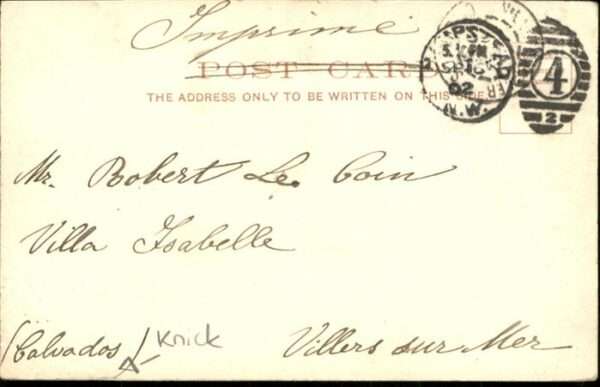 Imprimé
POST CARD
THE ADDRESS ONLY TO BE WRITTEN ON THIS SIDE
HAMPSTEAD
02
N.W.
4
2
Mr. Robert Le Coin
Villa Isabelle
(Calvados)
Knick
Villers sur Mer